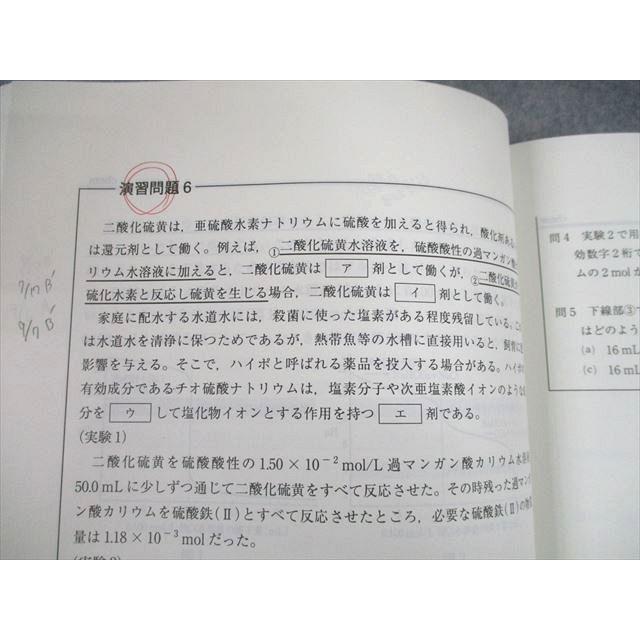 演習問題6
二酸化硫黄は，亜硫酸水素ナトリウムに硫酸を加えると得られ，酸化剤ある
は還元剤として働く。例えば，①二酸化硫黄水溶液を，硫酸酸性の過マンガン
リウム水溶液に加えると，二酸化硫黄は ア 剤として働くが，②二酸化硫黄
硫化水素と反応し硫黄を生じる場合，二酸化硫黄は イ 剤として働く。
家庭に配水する水道水には，殺菌に使った塩素がある程度残留している。
は水道水を清浄に保つためであるが，熱帯魚等の水槽に直接用いると，飼育に
影響を与える。そこで，ハイポと呼ばれる薬品を投入する場合がある。ハイポ
有効成分であるチオ硫酸ナトリウムは，塩素分子や次亜塩素酸イオンのような
分を ウ して塩化物イオンとする作用を持つ エ 剤である。
(実験1)
二酸化硫黄を硫酸酸性の1.50 × 10⁻² mol/L 過マンガン酸カリウム水溶
50.0 mLに少しずつ通じて二酸化硫黄をすべて反応させた。その時残った過マン
ン酸カリウムを硫酸鉄(Ⅱ)とすべて反応させたところ，必要な硫酸鉄(Ⅱ)の物
量は1.18 × 10⁻³ molだった。
7/17 B'
9/7 B'
問4 実験2で用
効数字2桁で
ムの2molか
問5 下線部③で
はどのよう
(a) 16 mL
(c) 16 mL